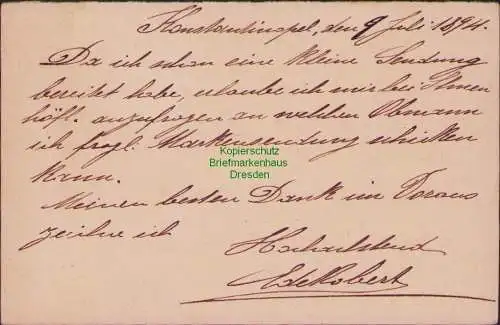 Konstantinopel, den 9 Juli 1894.
Da ich schon eine kleine Sendung
bereitet habe, erlaube ich mir bei Ihnen
höfl. anzufragen an welchen Obmann
ich fragl. Markensendung schicken
kann.
Meinen besten Dank im Voraus
zeichne ich
Hochachtend
Kopierschutz
Briefmarkenhaus
Dresden